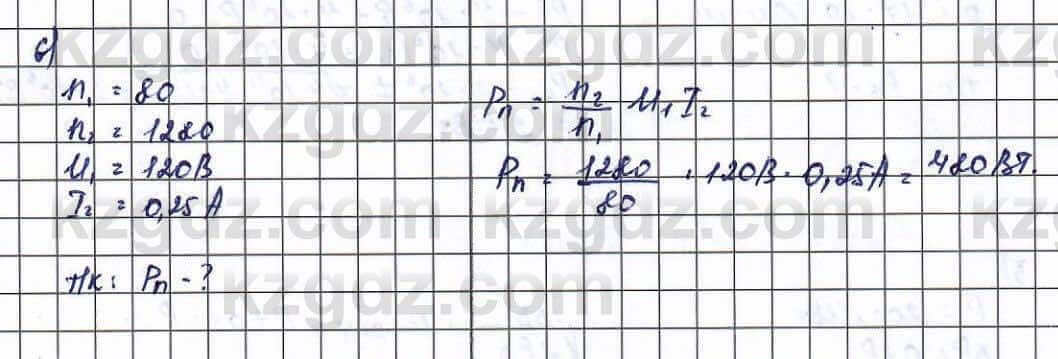 б)
n₁ = 80
n₂ = 1280
U₁ = 120В
I₂ = 0,25А
Т/к: Pп - ?
Pп = n₂/n₁ U₁I₂
Pп = 1280/80 · 120В · 0,25А = 480Вт.
kzgdz.com
kzgdz.com
kzgdz.com
kzgdz.com
kzgdz.com
kzgdz.com